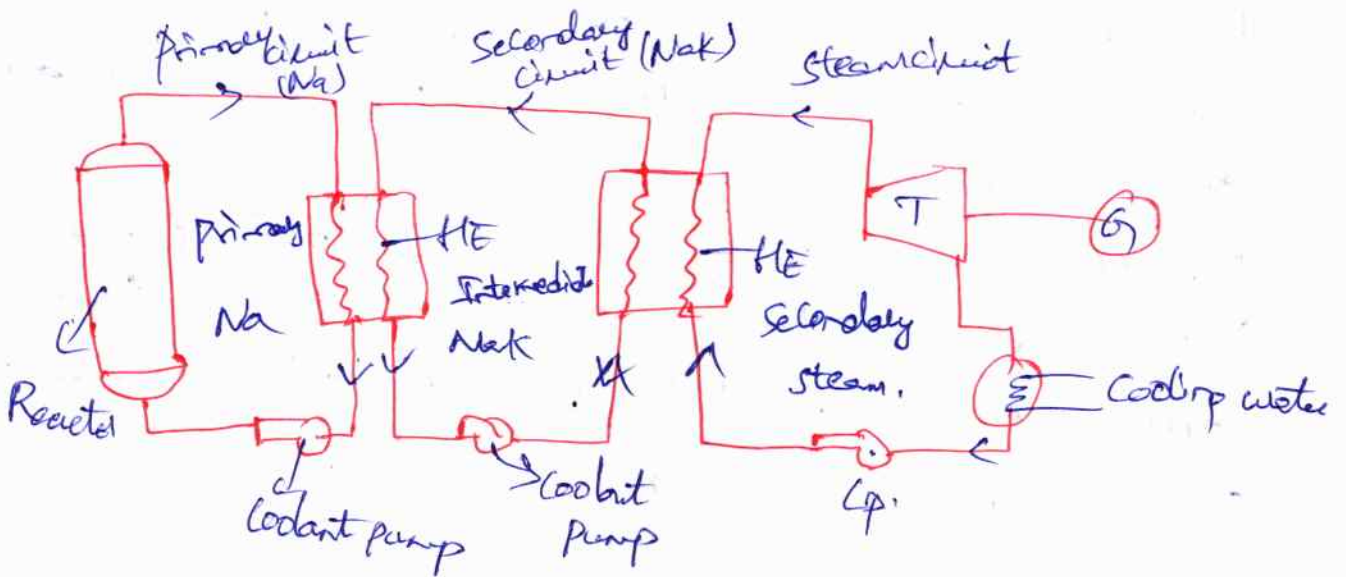 Primary circuit
(Na)
Secondary
circuit (NaK)
steam circuit
primary
Na
HE
Intermediate
NaK
HE
Secondary
steam.
T
G
Reactor
Coolant pump
Coolant
Pump
Cp.
Cooling water